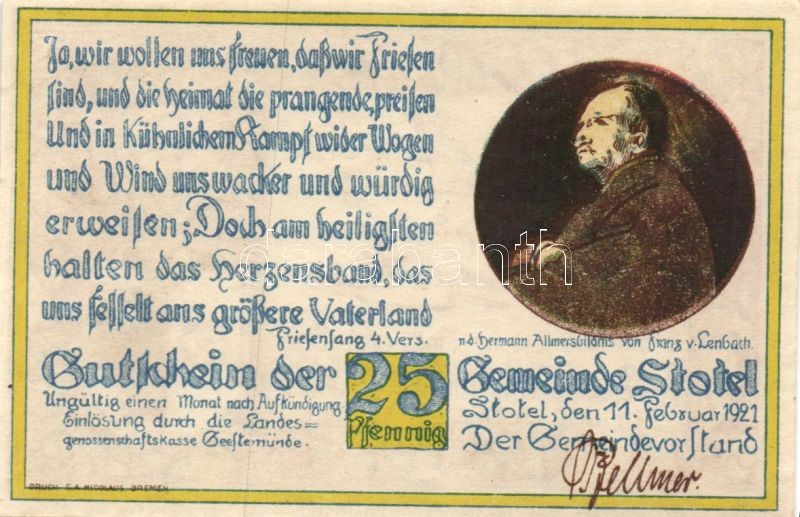 Ja, wir wollen uns freuen, daß wir Friesen
sind, und die Heimat die prangende, preisen
Und in Kühnlichem Kampf wider Wogen
und Wind uns wacker und würdig
erweisen; Doch am heiligsten
halten das Herzensband, das
uns fesselt ans größere Vaterland
Friesensang 4. Vers.
n.d. Hermann Allmersbildnis von Franz v. Lenbach.
Gutschein der 25 Pfennig Gemeinde Stotel
Ungültig einen Monat nach Aufkündigung
Einlösung durch die Landes=
genossenschaftskasse Geestemünde.
Stotel, den 11. Februar 1921
Der Gemeindevorstand
DRUCK C.A. NICOLAUS BREMEN
darabanth